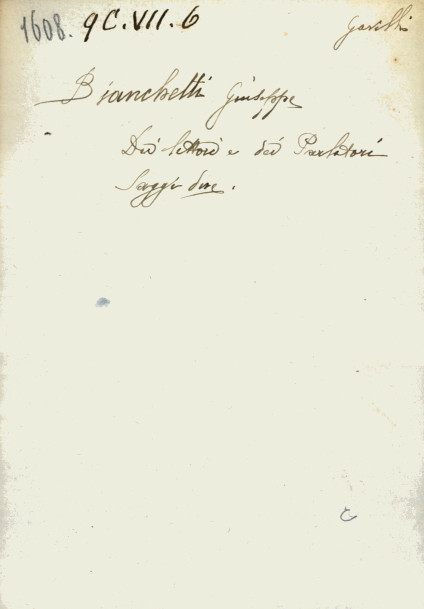 1608. 9C.VII.6
Bianchetti Giuseppe
Dei lettori e dei Parlatori
Saggi due.